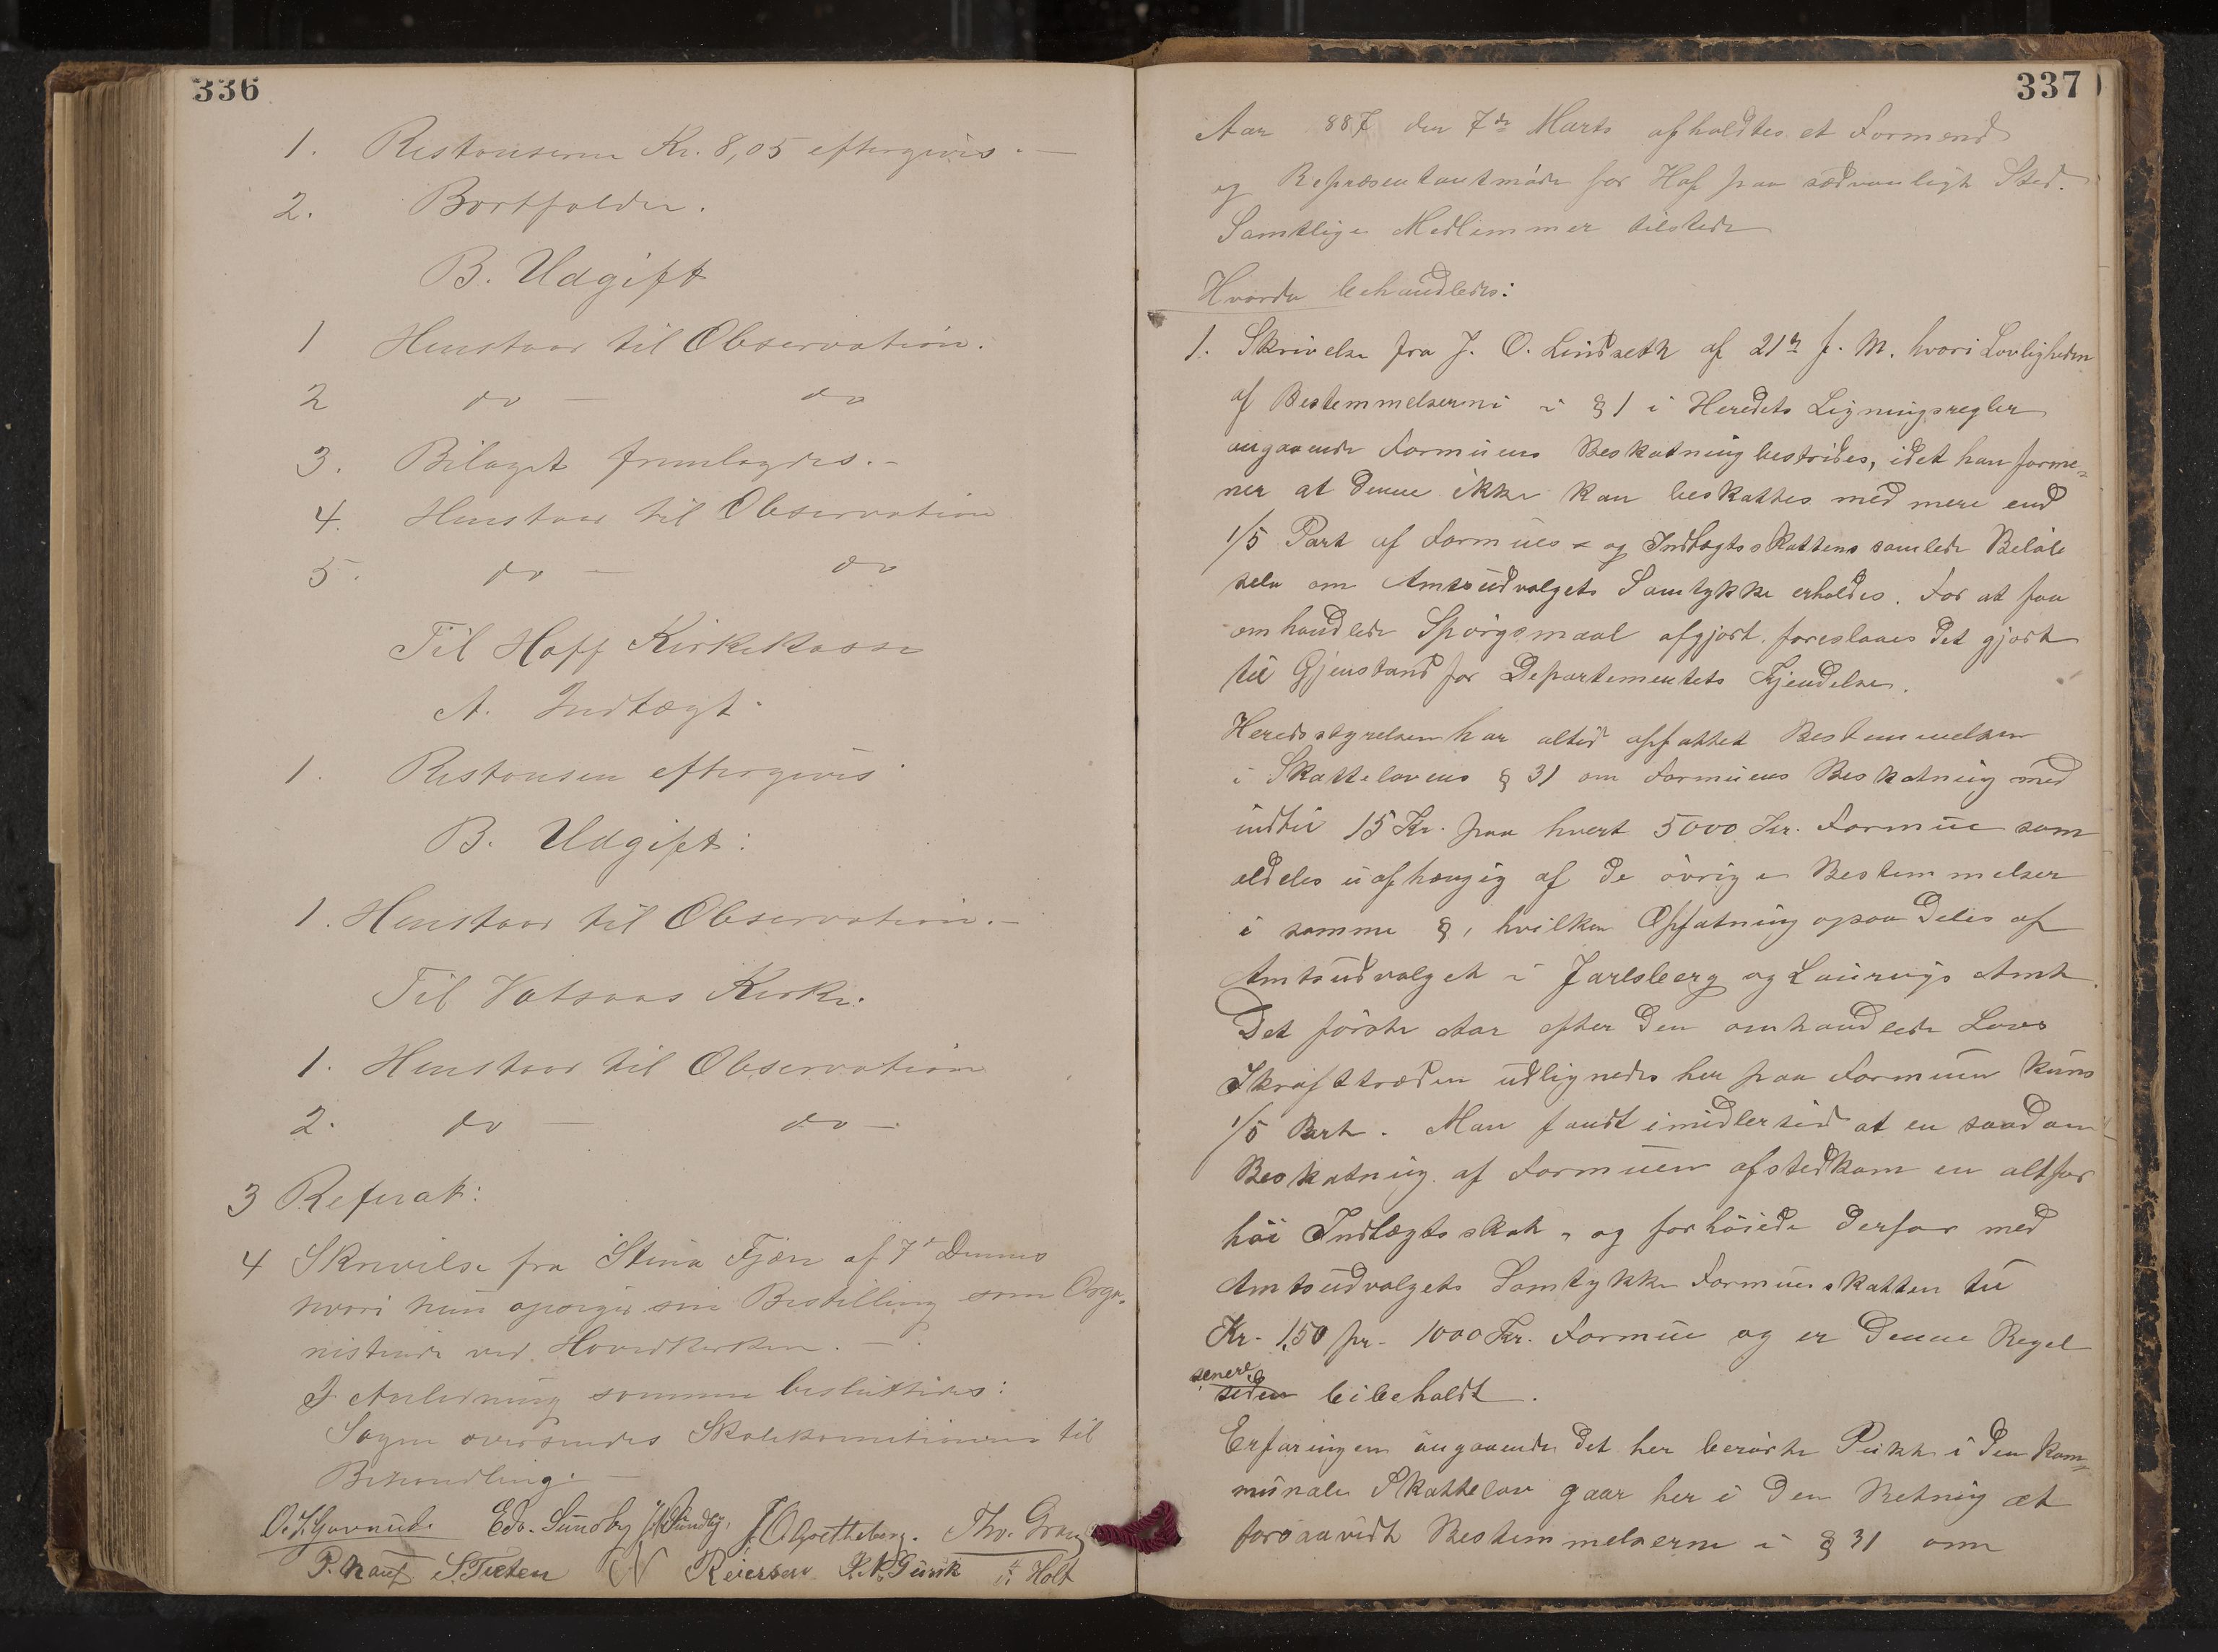 336
1. Restanserne Kr. 8,05 eftergives. —
2. Bortfalder.
B. Udgift
1 Henstaar til Observation.
2 do — do
3. Bilaget fremlagdes. -
4. Henstaar til Observation
5. do — do
Til Hoff Kirkekasse
A. Indtægt.
1. Restansen eftergives
B. Udgift:
1. Henstaar til Observation. —
Til Vatsaas Kirke.
1. Henstaar til Observation
2. do — do —
3 Referat:
4 Skrivelse fra Stina Fjære af 7de Dennes
hvori hun opsiger sin Bestilling som Orga-
nistinde ved Hovedkirken. —
I Anledning samme besluttedes:
Sagen oversendes Skolekomitionen til
Behandling. —
Edv. Sundby J. O. Grettheberg. Thv. Grang
P. Nauf S. Tveten N Reiersen Holt
337
Aar 887 den 7de Marts afholdtes et Formend
og Repræsentantmöde for Hof paa sædvanligt Sted.
Samtlige Medlemmer tilstede
Hvorda behandledes:
1. Skrivelse fra J. O. Lindseth af 21de f. M. hvori Lovligheden
af Bestemmelserne i § 1 i Heredets Ligningsregler
angaaende Formuens Beskatning bestrides, idet han forme-
ner at denne ikke kan beskattes med mere end
1/5 Part af Formues- og Indtægtsskattens samlede Belöb
selv om Amtsudvalgets Samtykke erholdes. For at faa
omhandlede Spörgsmaal afgjort foreslaaes det gjort
til Gjenstand for Departementets Kjendelse.
Heredsstyrelsen har altid opfattet Bestemmelsen
i Skattelovens § 31 om Formuens Beskatning med
indtil 15 Kr. paa hvert 5000 Kr. Formue som
aldeles uafhængig af de övrige Bestemmelser
i samme §, hvilken Opfatning ogsaa deles af
Amtsudvalget i Jarlsberg og Laurvigs Amt.
Det förste Aar efter den omhandlede Lovs
Ikrafttræden udlignedes her paa Formuen kuns
1/5 Part. Man fandt imidlertid at en saadan
Beskatning af Formuen afstedkom en altfor
höi Indtægtsskat, og forhöiede derfor med
Amtsudvalgets Samtykke Formuesskatten til
Kr. 1,50 pr. 1000 Kr. Formue og er denne Regel
senere
siden beibeholdt.
Erfaringen angaaende det her berörte Punkt i den kom-
munale Skattelov gaar her i den Retning at
forsaavidt Bestemmelserne i § 31 om